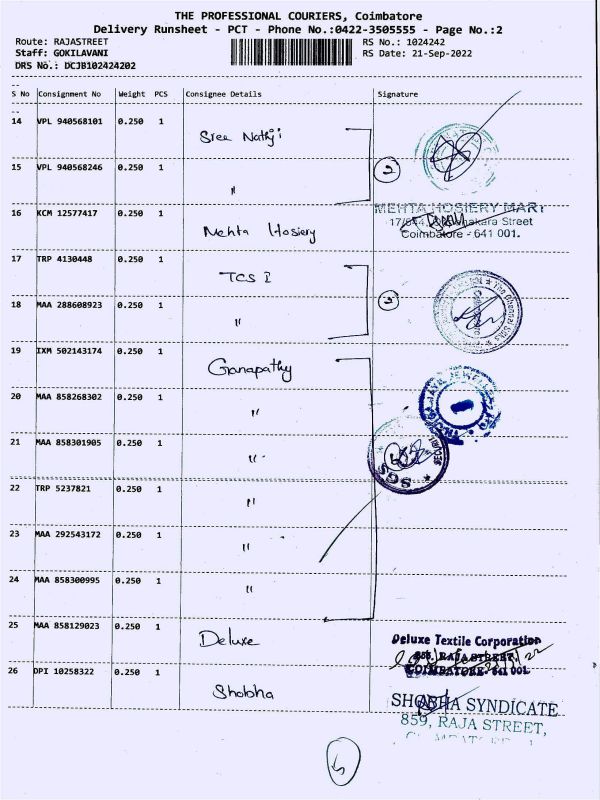 THE PROFESSIONAL COURIERS, Coimbatore
Delivery Runsheet - PCT - Phone No.:0422-3505555 - Page No.:2
Route: RAJASTREET
RS No.: 1024242
Staff: GOKILAVANI
RS Date: 21-Sep-2022
DRS No.: DCJB102424202
S No Consignment No Weight PCS Consignee Details Signature
14 VPL 940568101 0.250 1 Sree Nathji
15 VPL 940568246 0.250 1 "
2
16 KCM 12577417 0.250 1 Mehta Hosiery
MEHTA HOSIERY MART
Street
Coimbatore - 641 001.
17 TRP 4130448 0.250 1 TCS I
18 MAA 288608923 0.250 1 "
2
19 IXM 502143174 0.250 1 Ganapathy
20 MAA 858268302 0.250 1 "
21 MAA 858301905 0.250 1 "
SGS
22 TRP 5237821 0.250 1 "
23 MAA 292543172 0.250 1 "
24 MAA 858300995 0.250 1 "
25 MAA 858129023 0.250 1 Deluxe
Deluxe Textile Corporation
RAJA STREET,
COIMBATORE- 641 001.
26 DPI 10258322 0.250 1 Shobha
SHOBHA SYNDICATE
859, RAJA STREET,